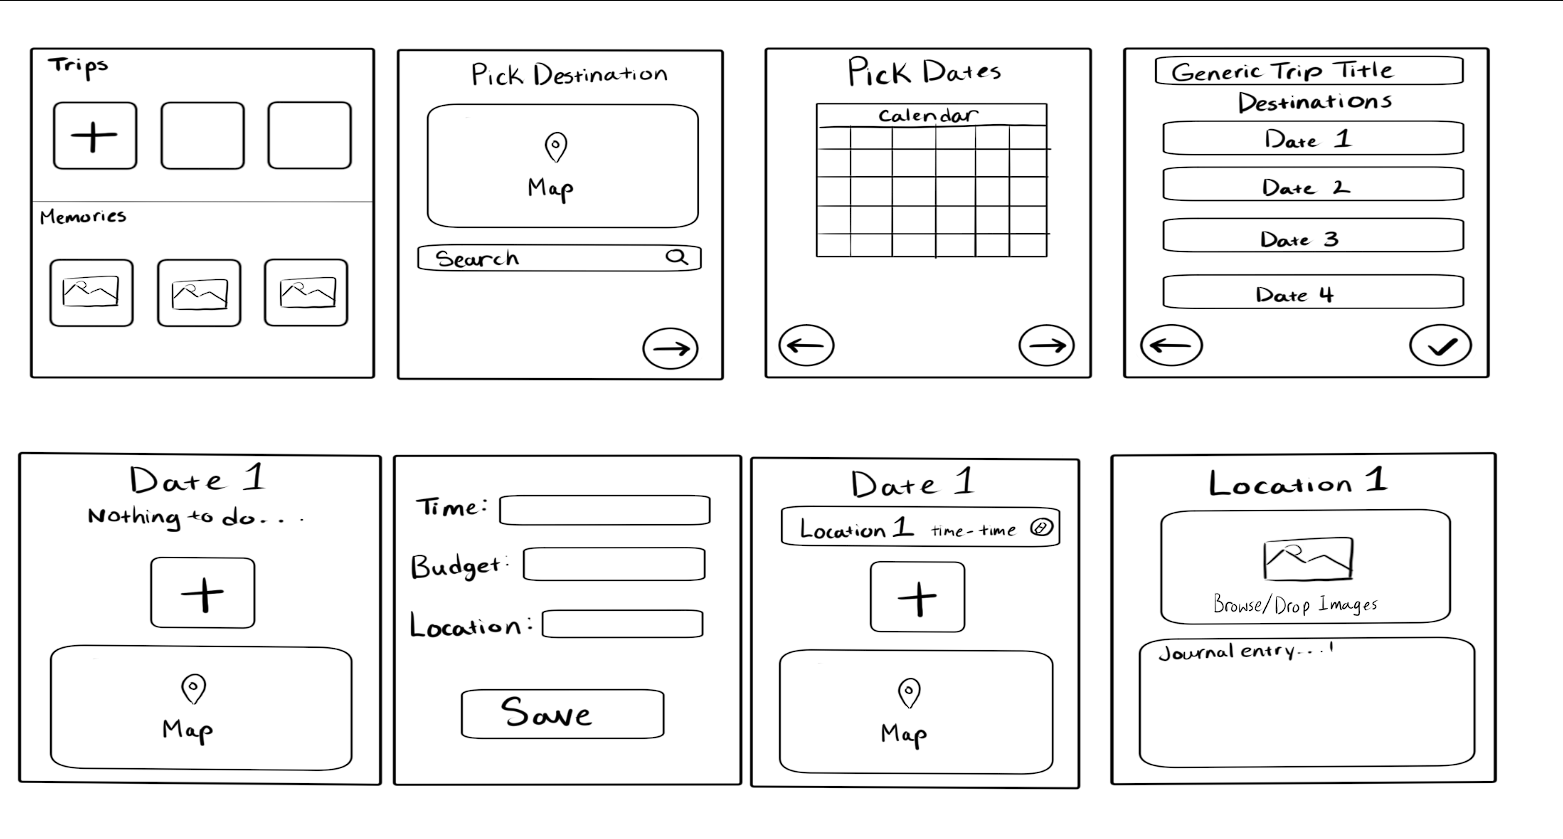 Trips
Memories
Pick Destination
Map
Search
Pick Dates
Calendar
Generic Trip Title
Destinations
Date 1
Date 2
Date 3
Date 4
Date 1
Nothing to do...
Map
Time:
Budget:
Location:
Save
Date 1
Location 1 time-time
Map
Location 1
Browse/Drop Images
Journal entry...!